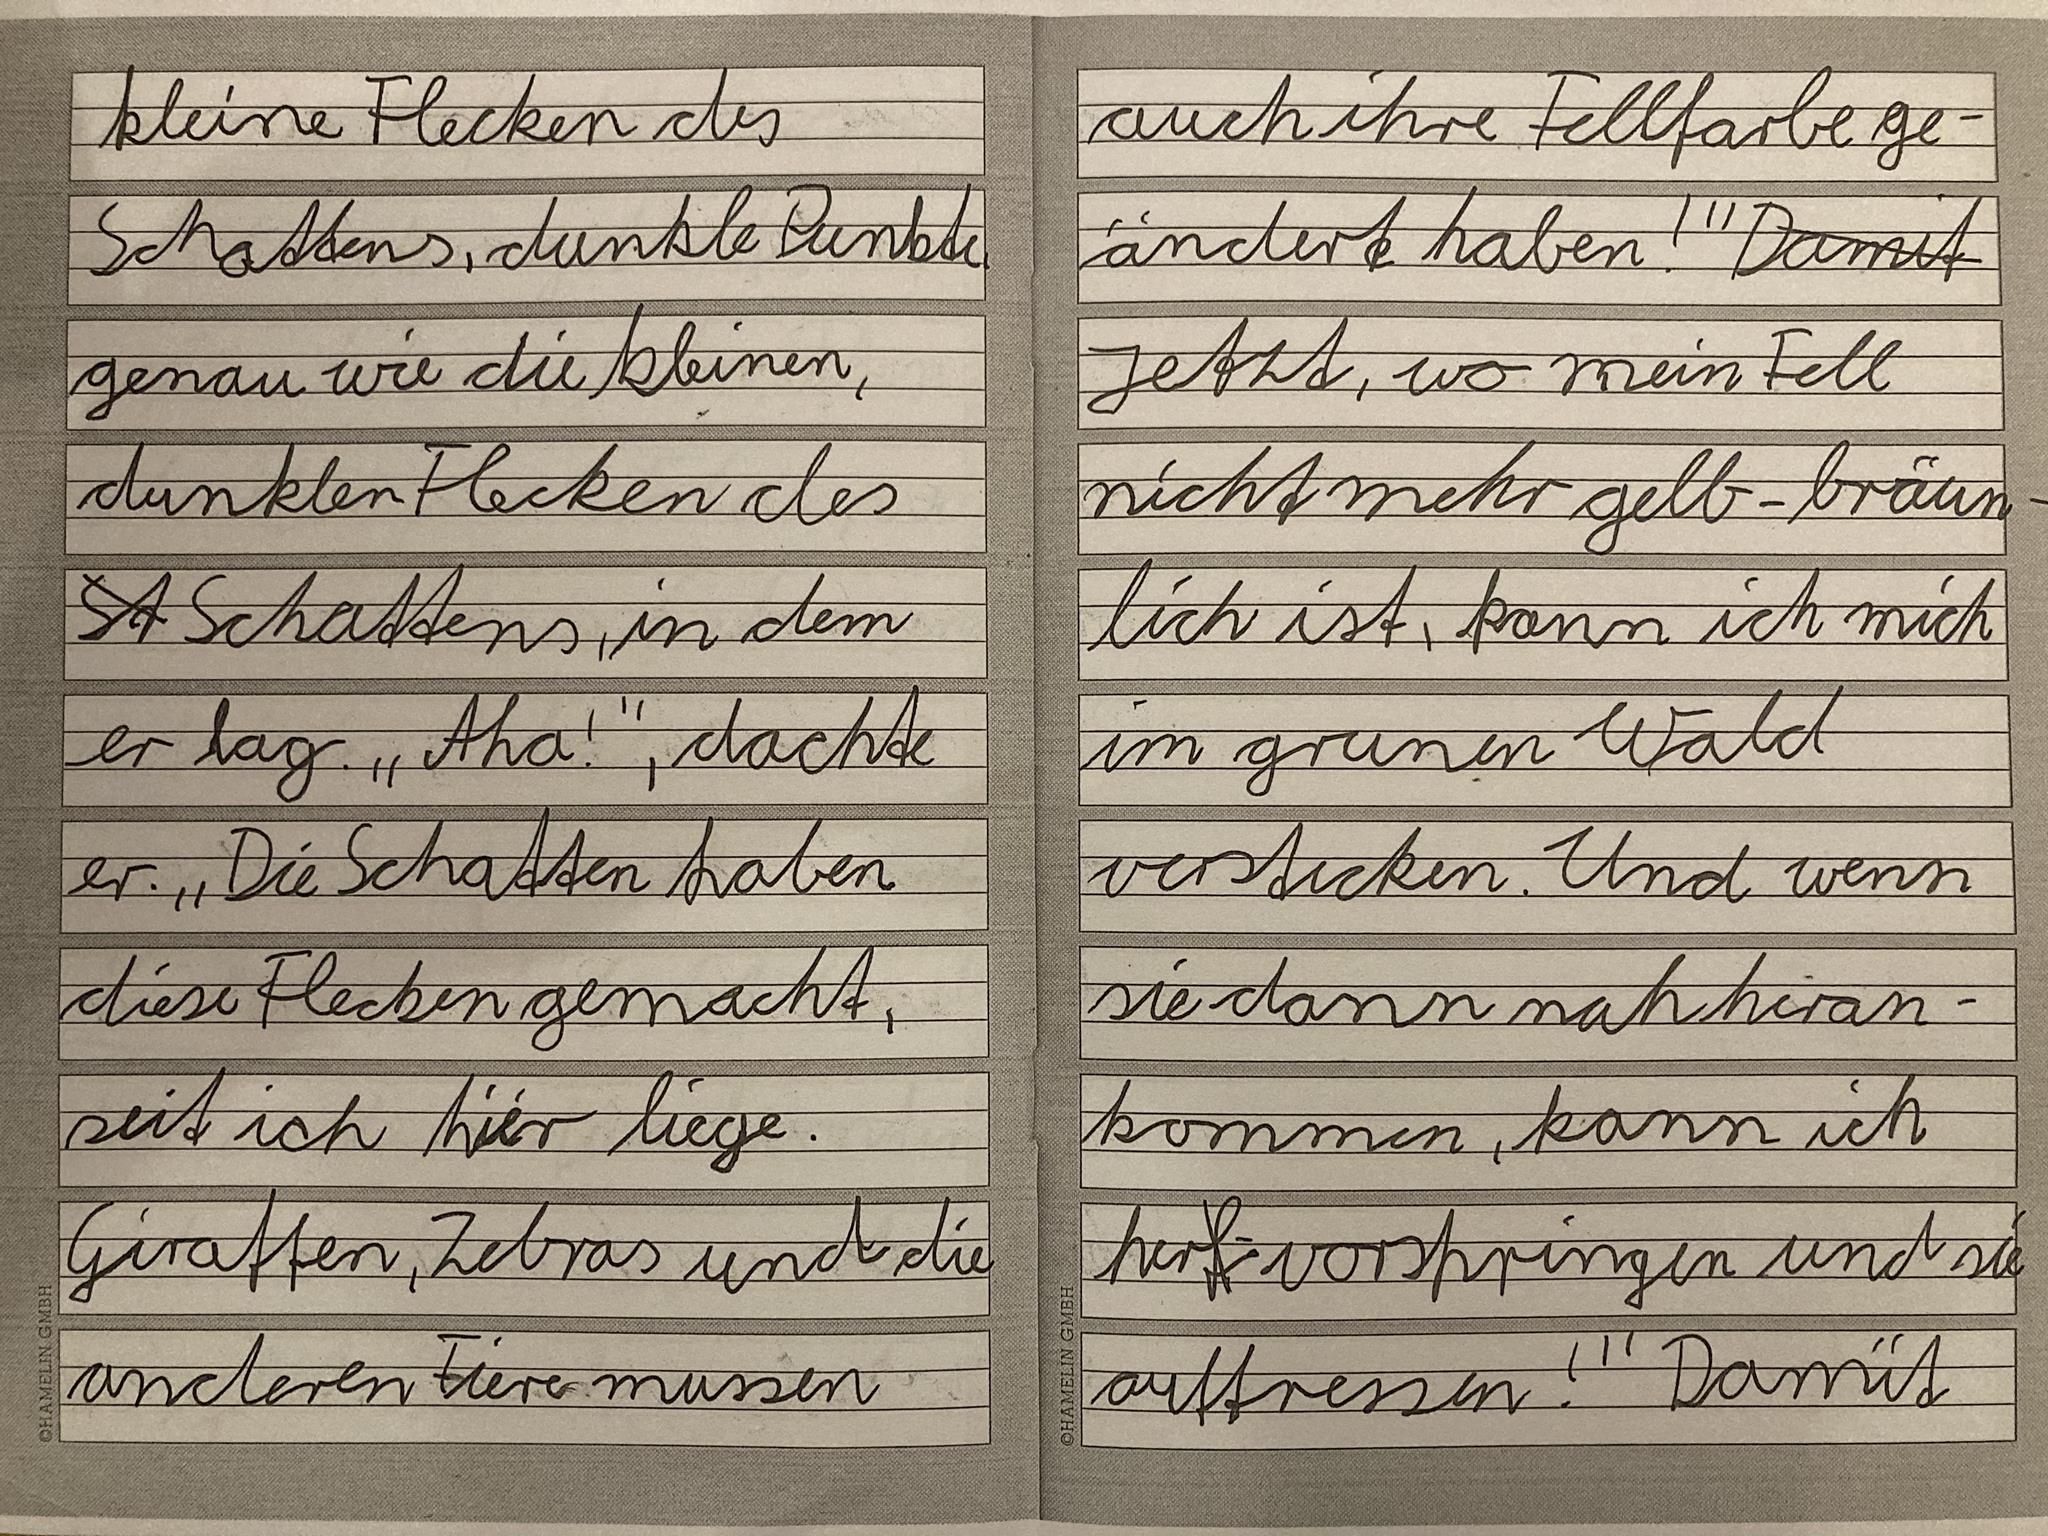 kleine Flecken des
Schattens, dunkle Punkte,
genau wie die kleinen,
dunklen Flecken des
St Schattens, in dem
er lag. „Aha!", dachte
er. „Die Schatten haben
diese Flecken gemacht,
seit ich hier liege.
Giraffen, Zebras und die
anderen Tiere mussen
©HAMELIN GMBH
auch ihre Fellfarbe ge-
ändert haben!" Damit
Jetzt, wo mein Fell
nicht mehr gelb-bräun-
lich ist, kann ich mich
im grunen Wald
verstecken. Und wenn
sie dann nah heran-
kommen, kann ich
hervorspringen und sie
auffressen!" Damit
©HAMELIN GMBH